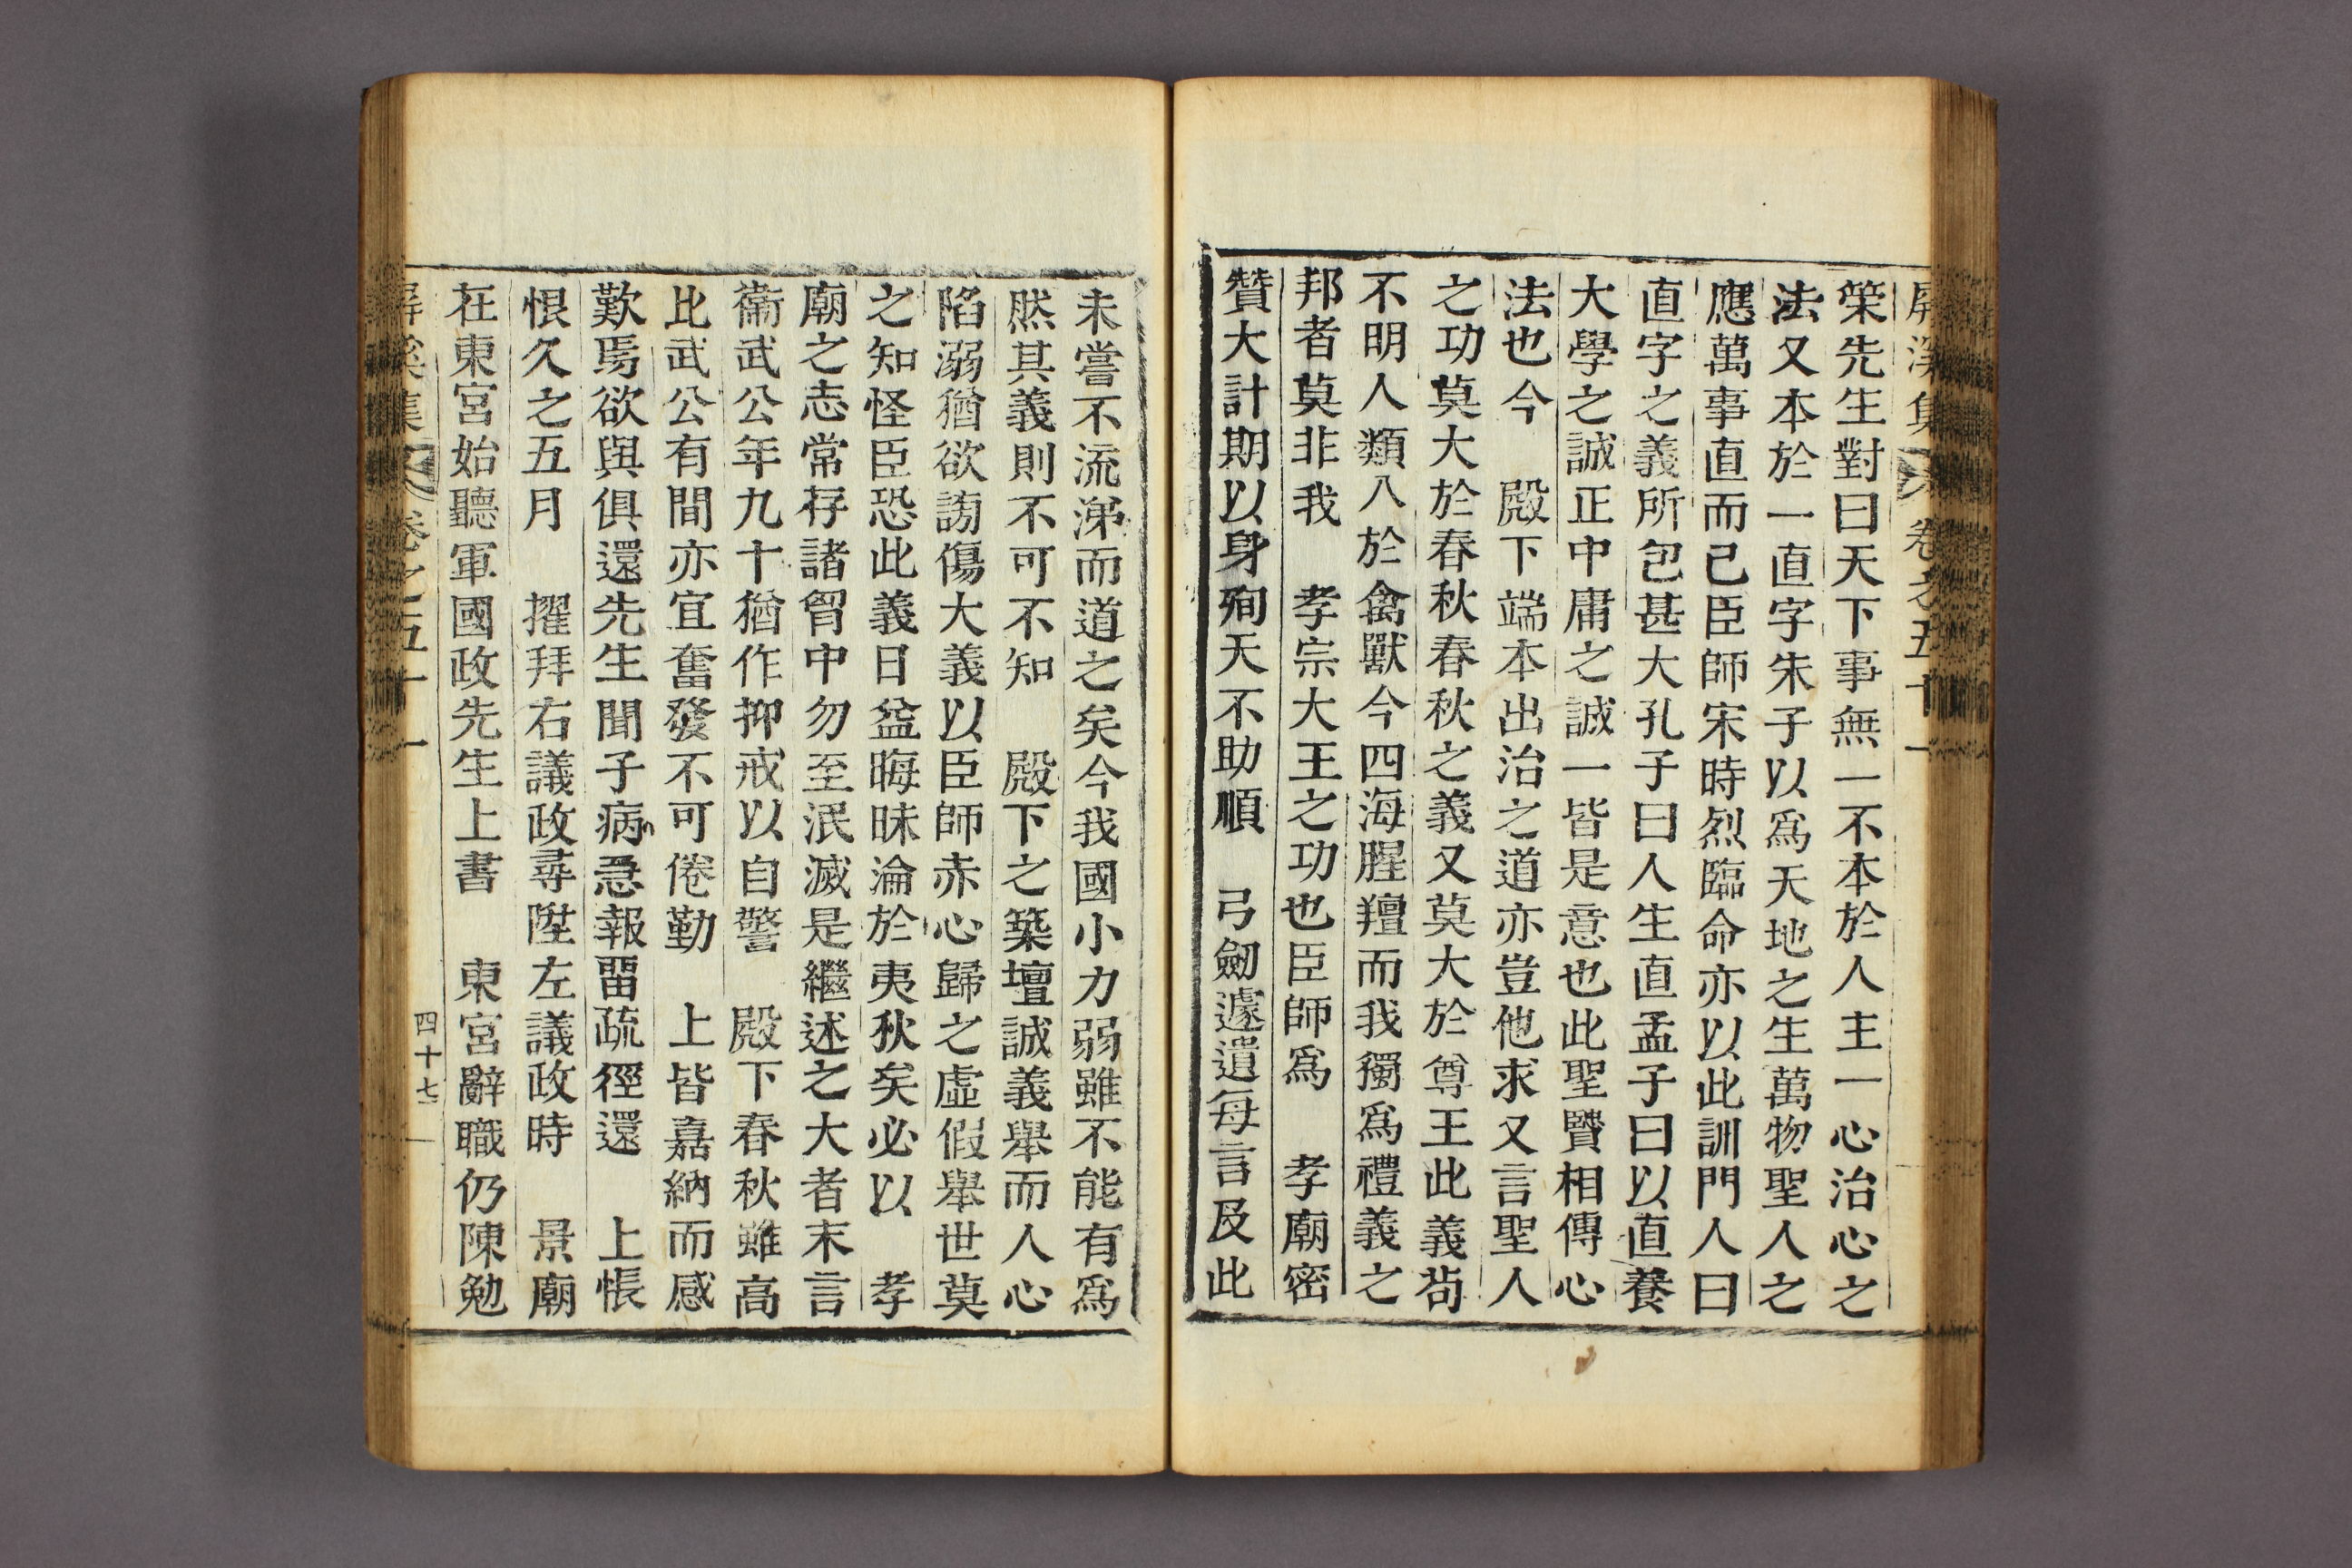 屏溪集 卷之五十一
榮先生對曰天下事無一不本於人主一心治心之
法又本於一直字朱子以爲天地之生萬物聖人之
應萬事直而已臣師宋時烈臨命亦以此訓門人曰
直字之義所包甚大孔子曰人生直孟子曰以直養
大學之誠正中庸之誠一皆是意也此聖賢相傳心
法也今 殿下端本出治之道亦豈他求又言聖人
之功莫大於春秋春秋之義又莫大於尊王此義苟
不明人類入於禽獸今四海腥羶而我獨爲禮義之
邦者莫非我 孝宗大王之功也臣師爲 孝廟密
贊大計期以身殉天不助順 弓劒遽遺每言及此
未嘗不流涕而道之矣今我國小力弱雖不能有爲
然其義則不可不知 殿下之築壇誠義舉而人心
陷溺猶欲謗傷大義以臣師赤心歸之虛假舉世莫
之知怪臣恐此義日益晦昧淪於夷狄矣必以 孝
廟之志常存諸胷中勿至泯滅是繼述之大者末言
衛武公年九十猶作抑戒以自警 殿下春秋雖高
比武公有間亦宜奮發不可倦勤 上皆嘉納而感
歎焉欲與俱還先生聞子病急報留疏徑還 上悵
恨久之五月 擢拜右議政尋陞左議政時 景廟
在東宮始聽軍國政先生上書 東宮辭職仍陳勉
屏溪集 卷之五十一 四十七